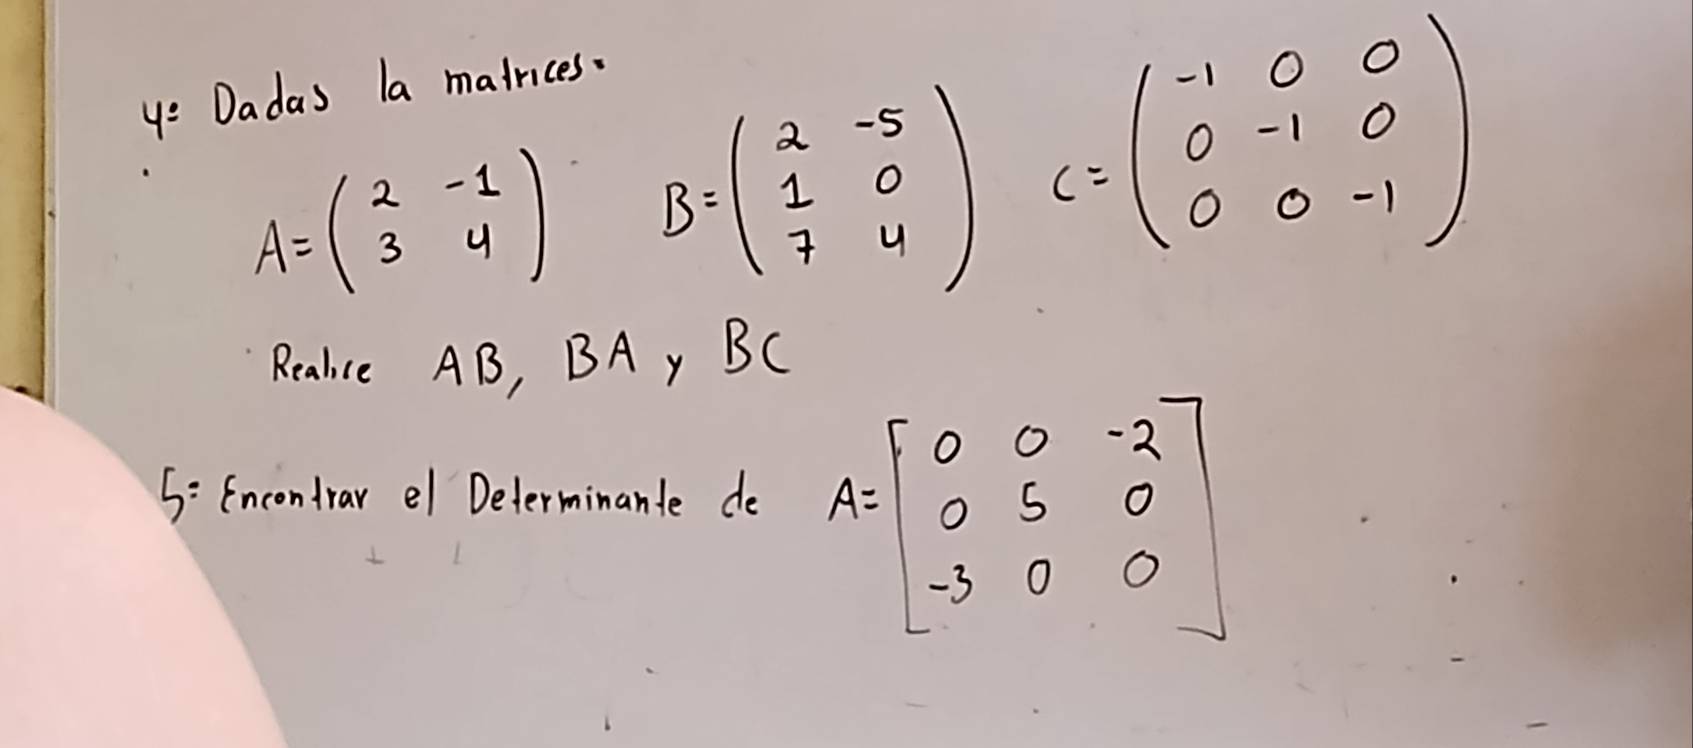 4: Dadas la matrices.
A = ( 2 -1 ; 3 4 ) B = ( 2 -5 ; 1 0 ; 7 4 ) C = ( -1 0 0 ; 0 -1 0 ; 0 0 -1 )
Realice AB, BA y BC
5: Encontrar el Determinante de A = [ 0 0 -2 ; 0 5 0 ; -3 0 0 ]